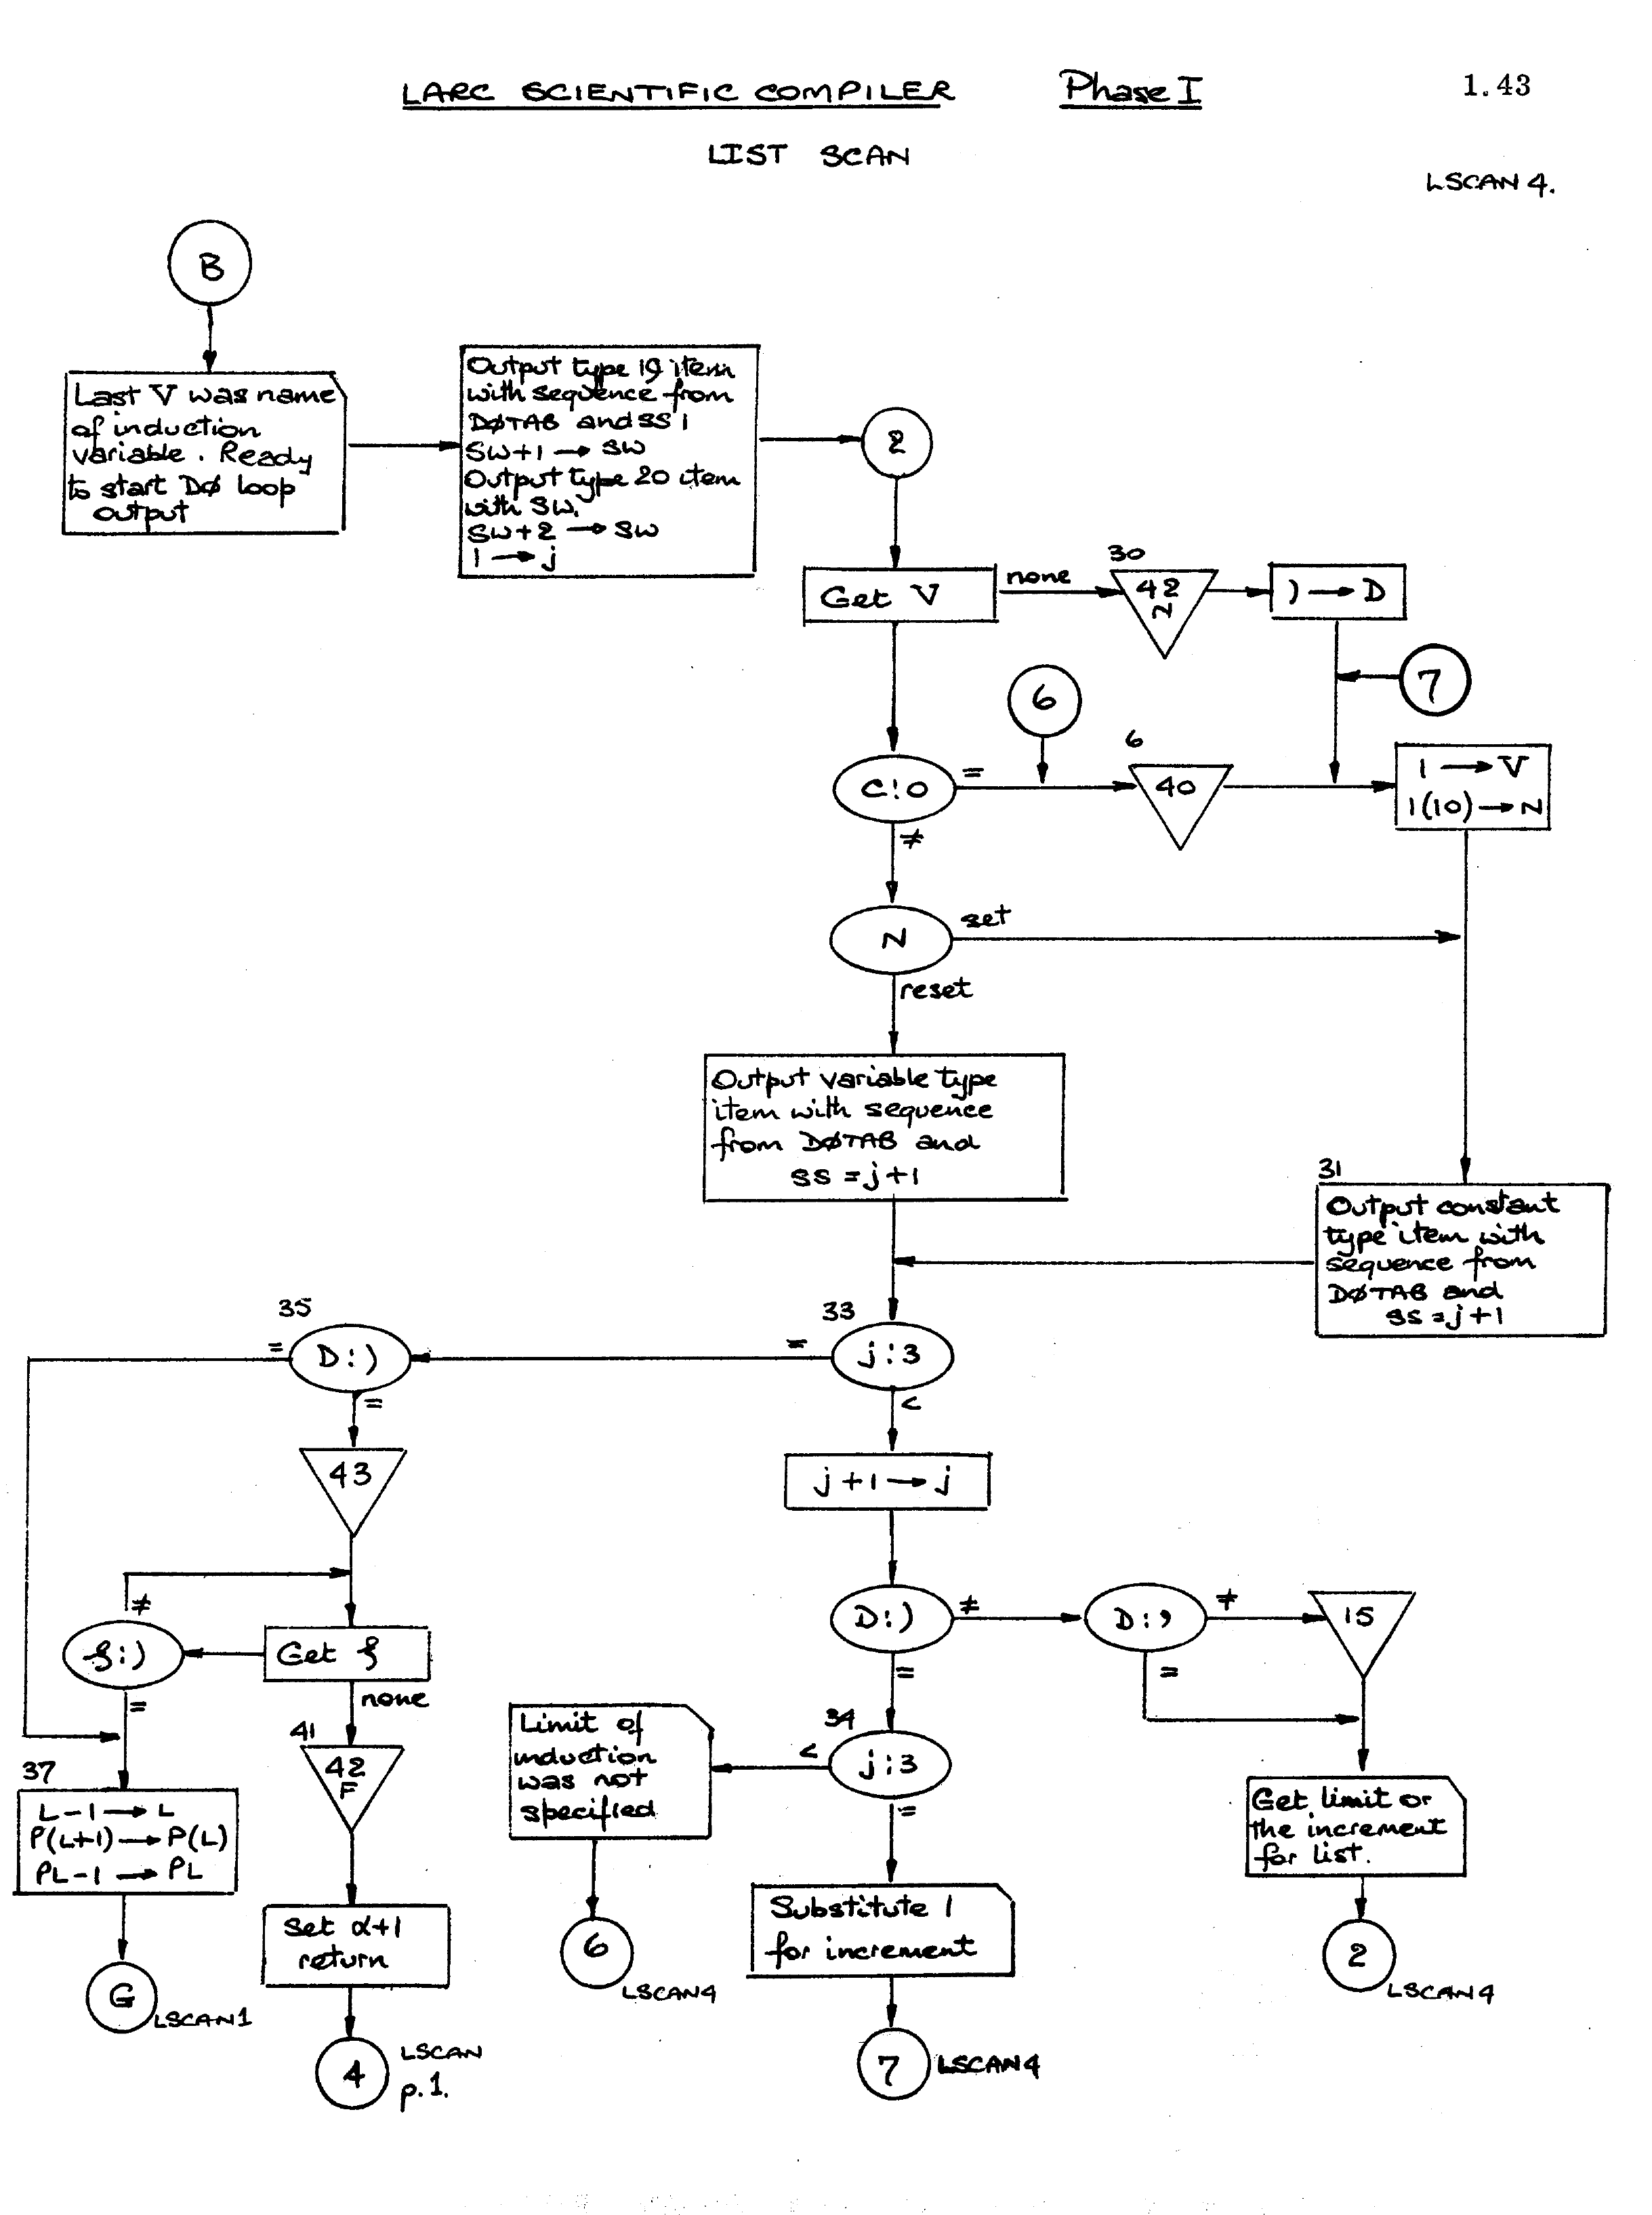 LARC SCIENTIFIC COMPILER Phase I 1.43
LIST SCAN
LSCAN 4.
B
Last V was name
of induction
variable. Ready
to start DØ loop
output
Output type 19 item
with sequence from
DØTAB and SS 1
SW+1 → SW
Output type 20 item
with SW.
SW+2 → SW
1 → j
2
Get V
none
30
42
N
) → D
7
6
C!0
=
6
40
1 → V
1(10) → N
≠
N
set
reset
Output variable type
item with sequence
from DØTAB and
SS = j+1
31
Output constant
type item with
sequence from
DØTAB and
SS = j+1
35
D:)
=
=
33
j:3
=
<
43
j+1 → j
≠
Get ξ
ξ:)
=
none
D:)
≠
=
D:,
≠
=
15
41
42
F
37
L-1 → L
P(L+1) → P(L)
PL-1 → PL
Limit of
induction
was not
specified
34
j:3
<
=
Get limit or
the increment
for list.
Set α+1
return
Substitute 1
for increment
G
LSCAN1
4
LSCAN
p.1.
6
LSCAN4
7
LSCAN4
2
LSCAN4